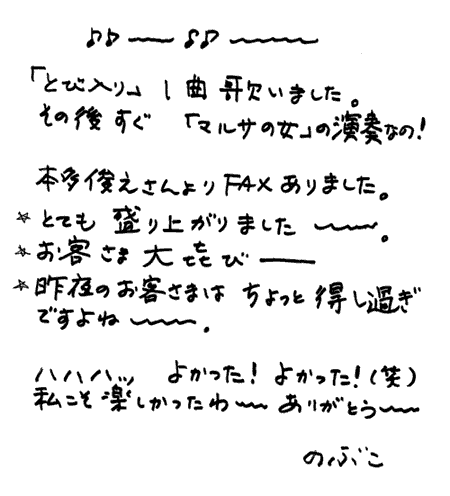 ♪♪〜〜♪♪〜〜〜
「とび入り」1曲歌いました。
その後すぐ 「マルサの女」の演奏なの！
本多俊之さんよりFAXありました。
☆とても盛り上がりました〜〜。
☆お客さま大喜び――
☆昨夜のお客さまは ちょっと得し過ぎ
ですよね〜〜。
ハハハッ よかった！よかった！（笑）
私こそ楽しかったわ〜〜ありがとう〜〜
のぶこ